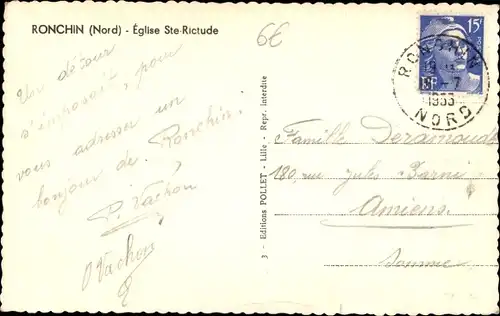 RONCHIN (Nord) - Église Ste-Rictude
6€
Un détour
s'imposait, pour
vous adresser un
bonjour de Ronchin.
P. Vachon
O Vachon
3 - Editions POLLET - Lille - Repr. Interdite
15F
RF
RONCHIN
-7
1955
NORD
Famille Deramoudt
180, rue Jules Barni
Amiens
Somme